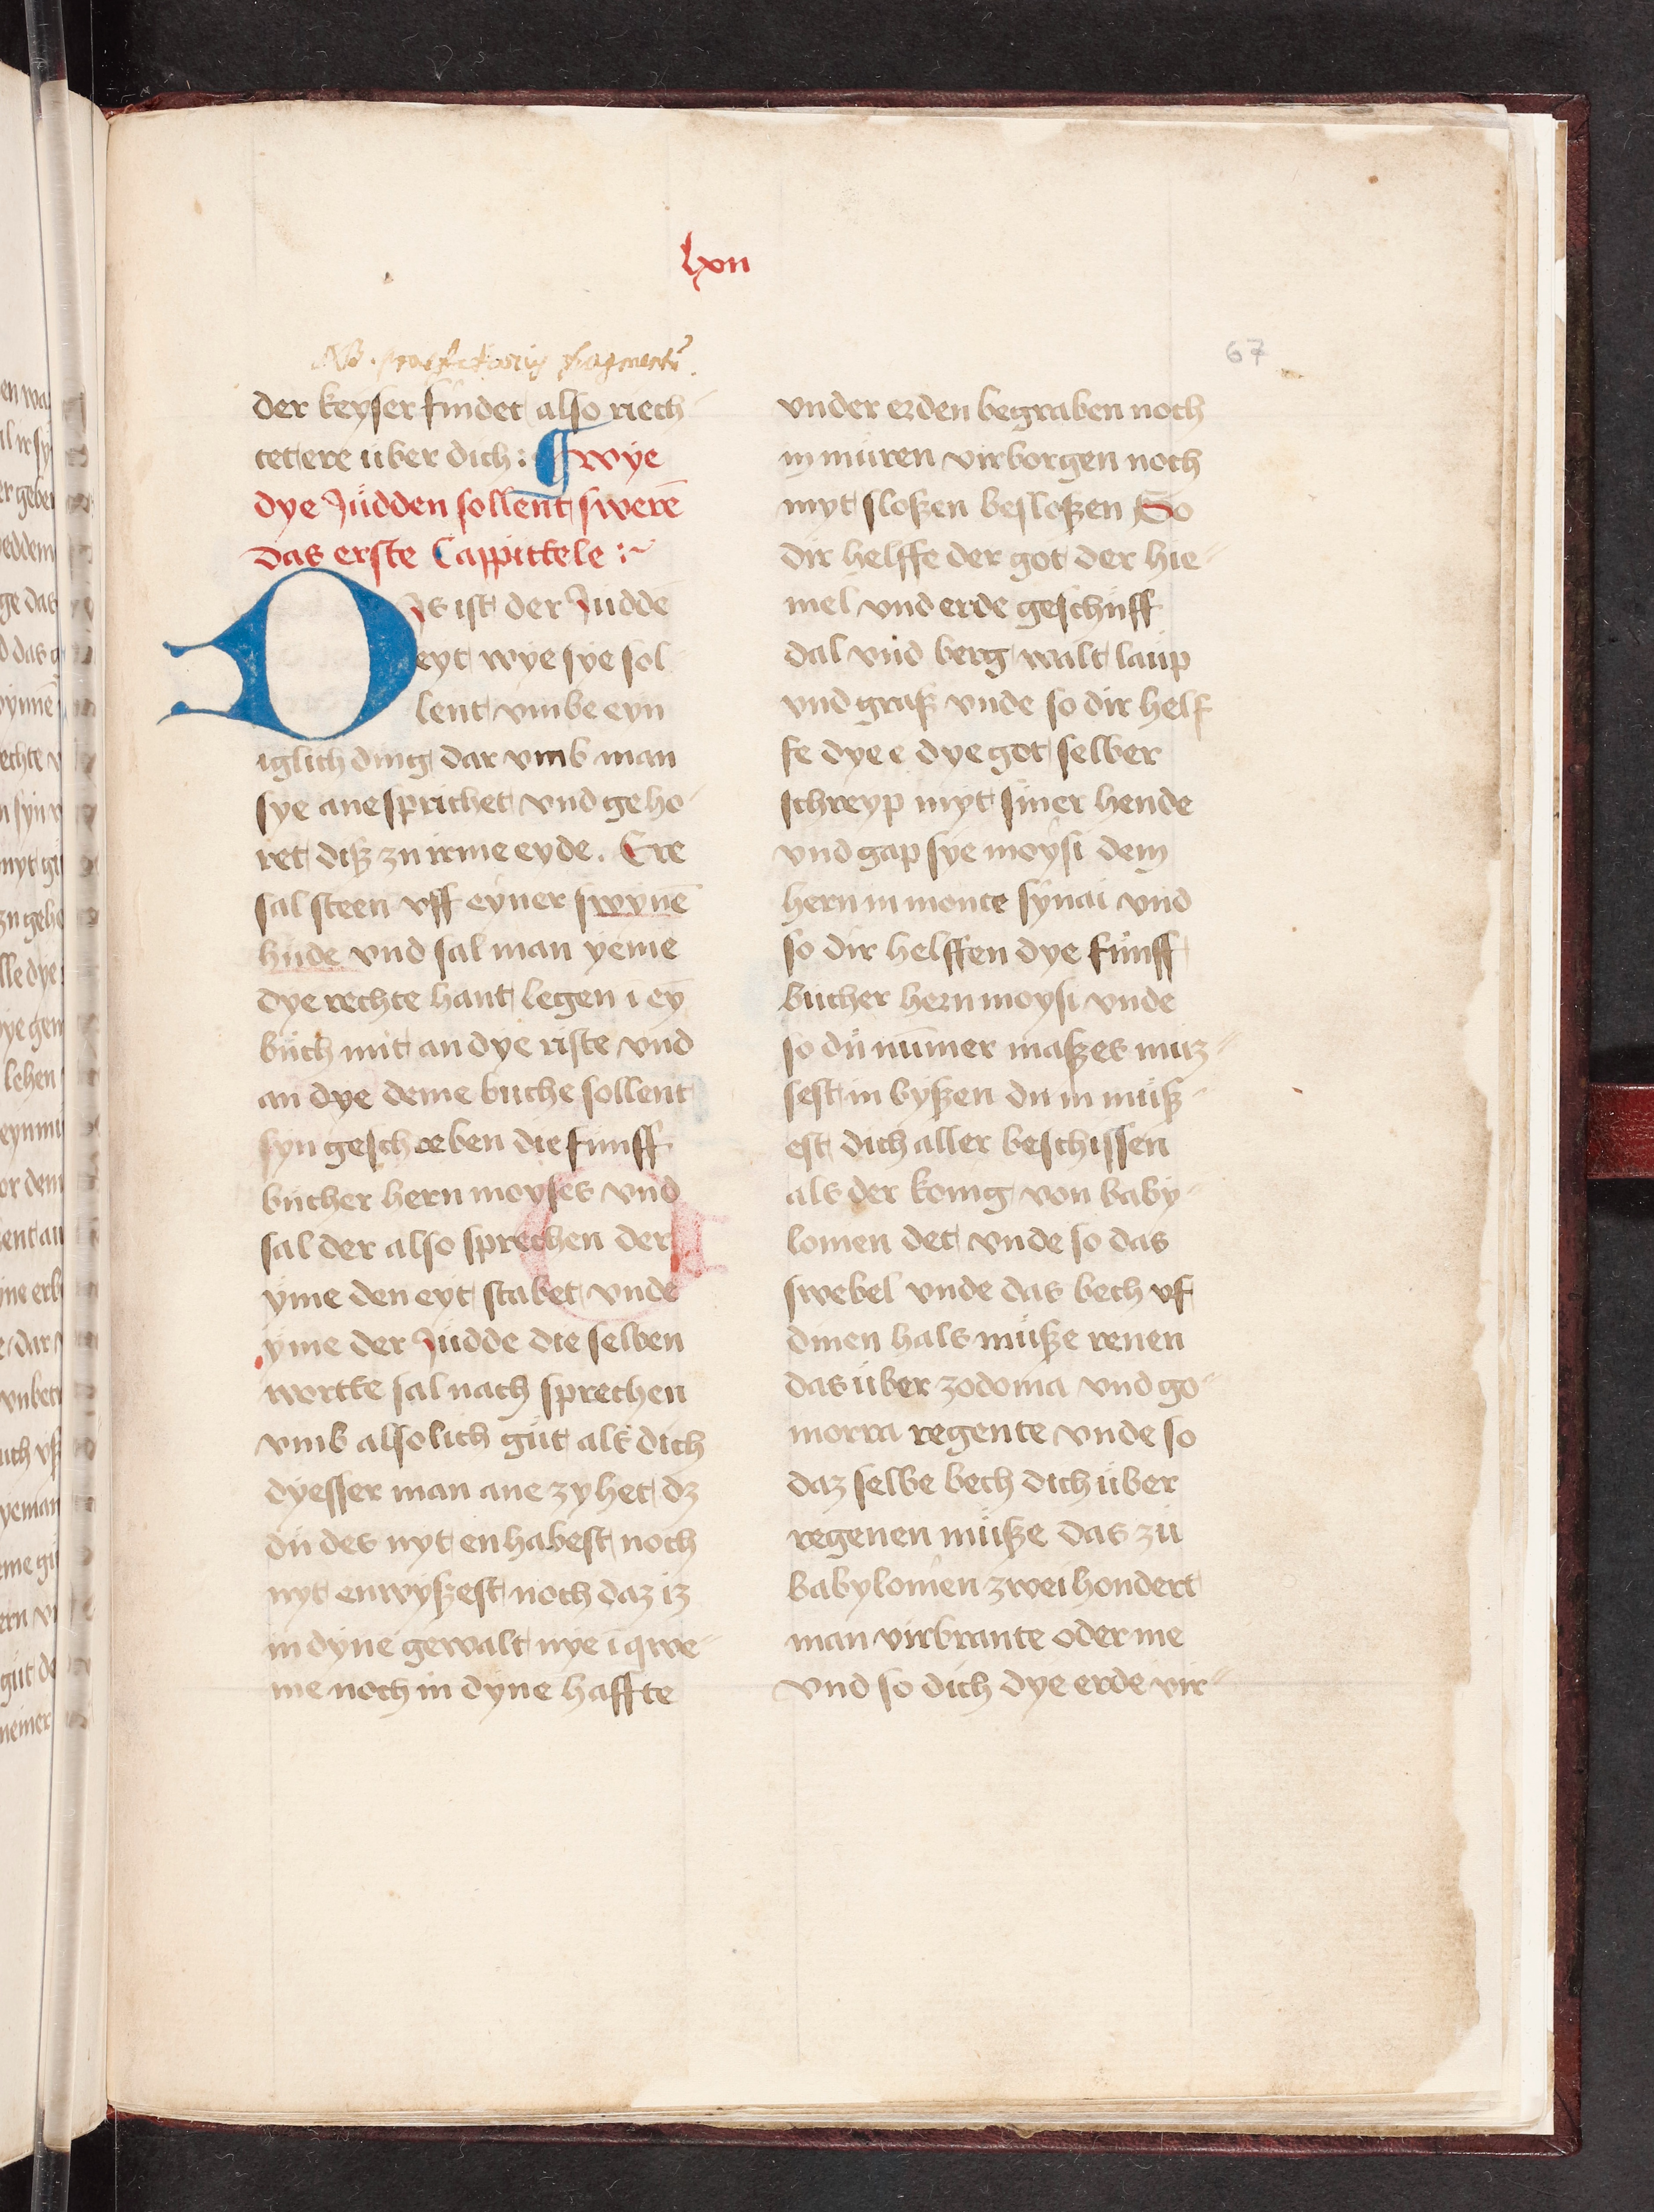 lxvii
67
NB.
der keyser findet also riech-
tet ere uber dich: ¶ wye
dye Judden sollent swerē
das erste Cappittele :~
DJs ist der Juddē
eyt wye sye sol
lent vmbe eyn
iglich ding dar vmb man
sye anesprichet vnd geho-
ret diß zu irme eyde. Ere
sal steen vff eyner swynē
hude vnd sal man yeme
dye rechte hant legen ī ey
buch mit an dye riste vnd
an dye deme buche sollent
syn geschreben die funff
bucher hern moyses vnd
sal der also sprechen der
yme den eyt stabet vnde
yme der Judde die selben
wortte sal nach sprechen
vmb alsolich gut als dich
dyesser man ane zyhet dz
du des nyt en habest noch
nyt enwyßest noch daz iz
in dyne gewalt nye ī qwe-
me noch in dyne haffte
vnder erden begraben noch
in muren virborgen noch
myt sloßen besloßen So
dir helffe der got der hie-
mel vnd erde geschuff
dal vnd berg walt laup
vnd graß vnde so dir helf
fe dye e dye got selber
schreyp myt siner hende
vnd gap sye moysi dem
hern in monte synai vnd
so dir helffen dye funff
bucher hern moysi vnde
so du nūmer maßes muz-
sest in byßen du in muß-
est dich aller beschissen
als der konig von baby-
lonien det vnde so das
swebel vnde das bech vf
dinen hals muße renen
das uber zodoma vnd go-
morra regente vnde so
daz selbe bech dich uber
regenen muße das zu
babylonien zwei hondert
man virbrante oder me
vnd so dich dye erde vir-